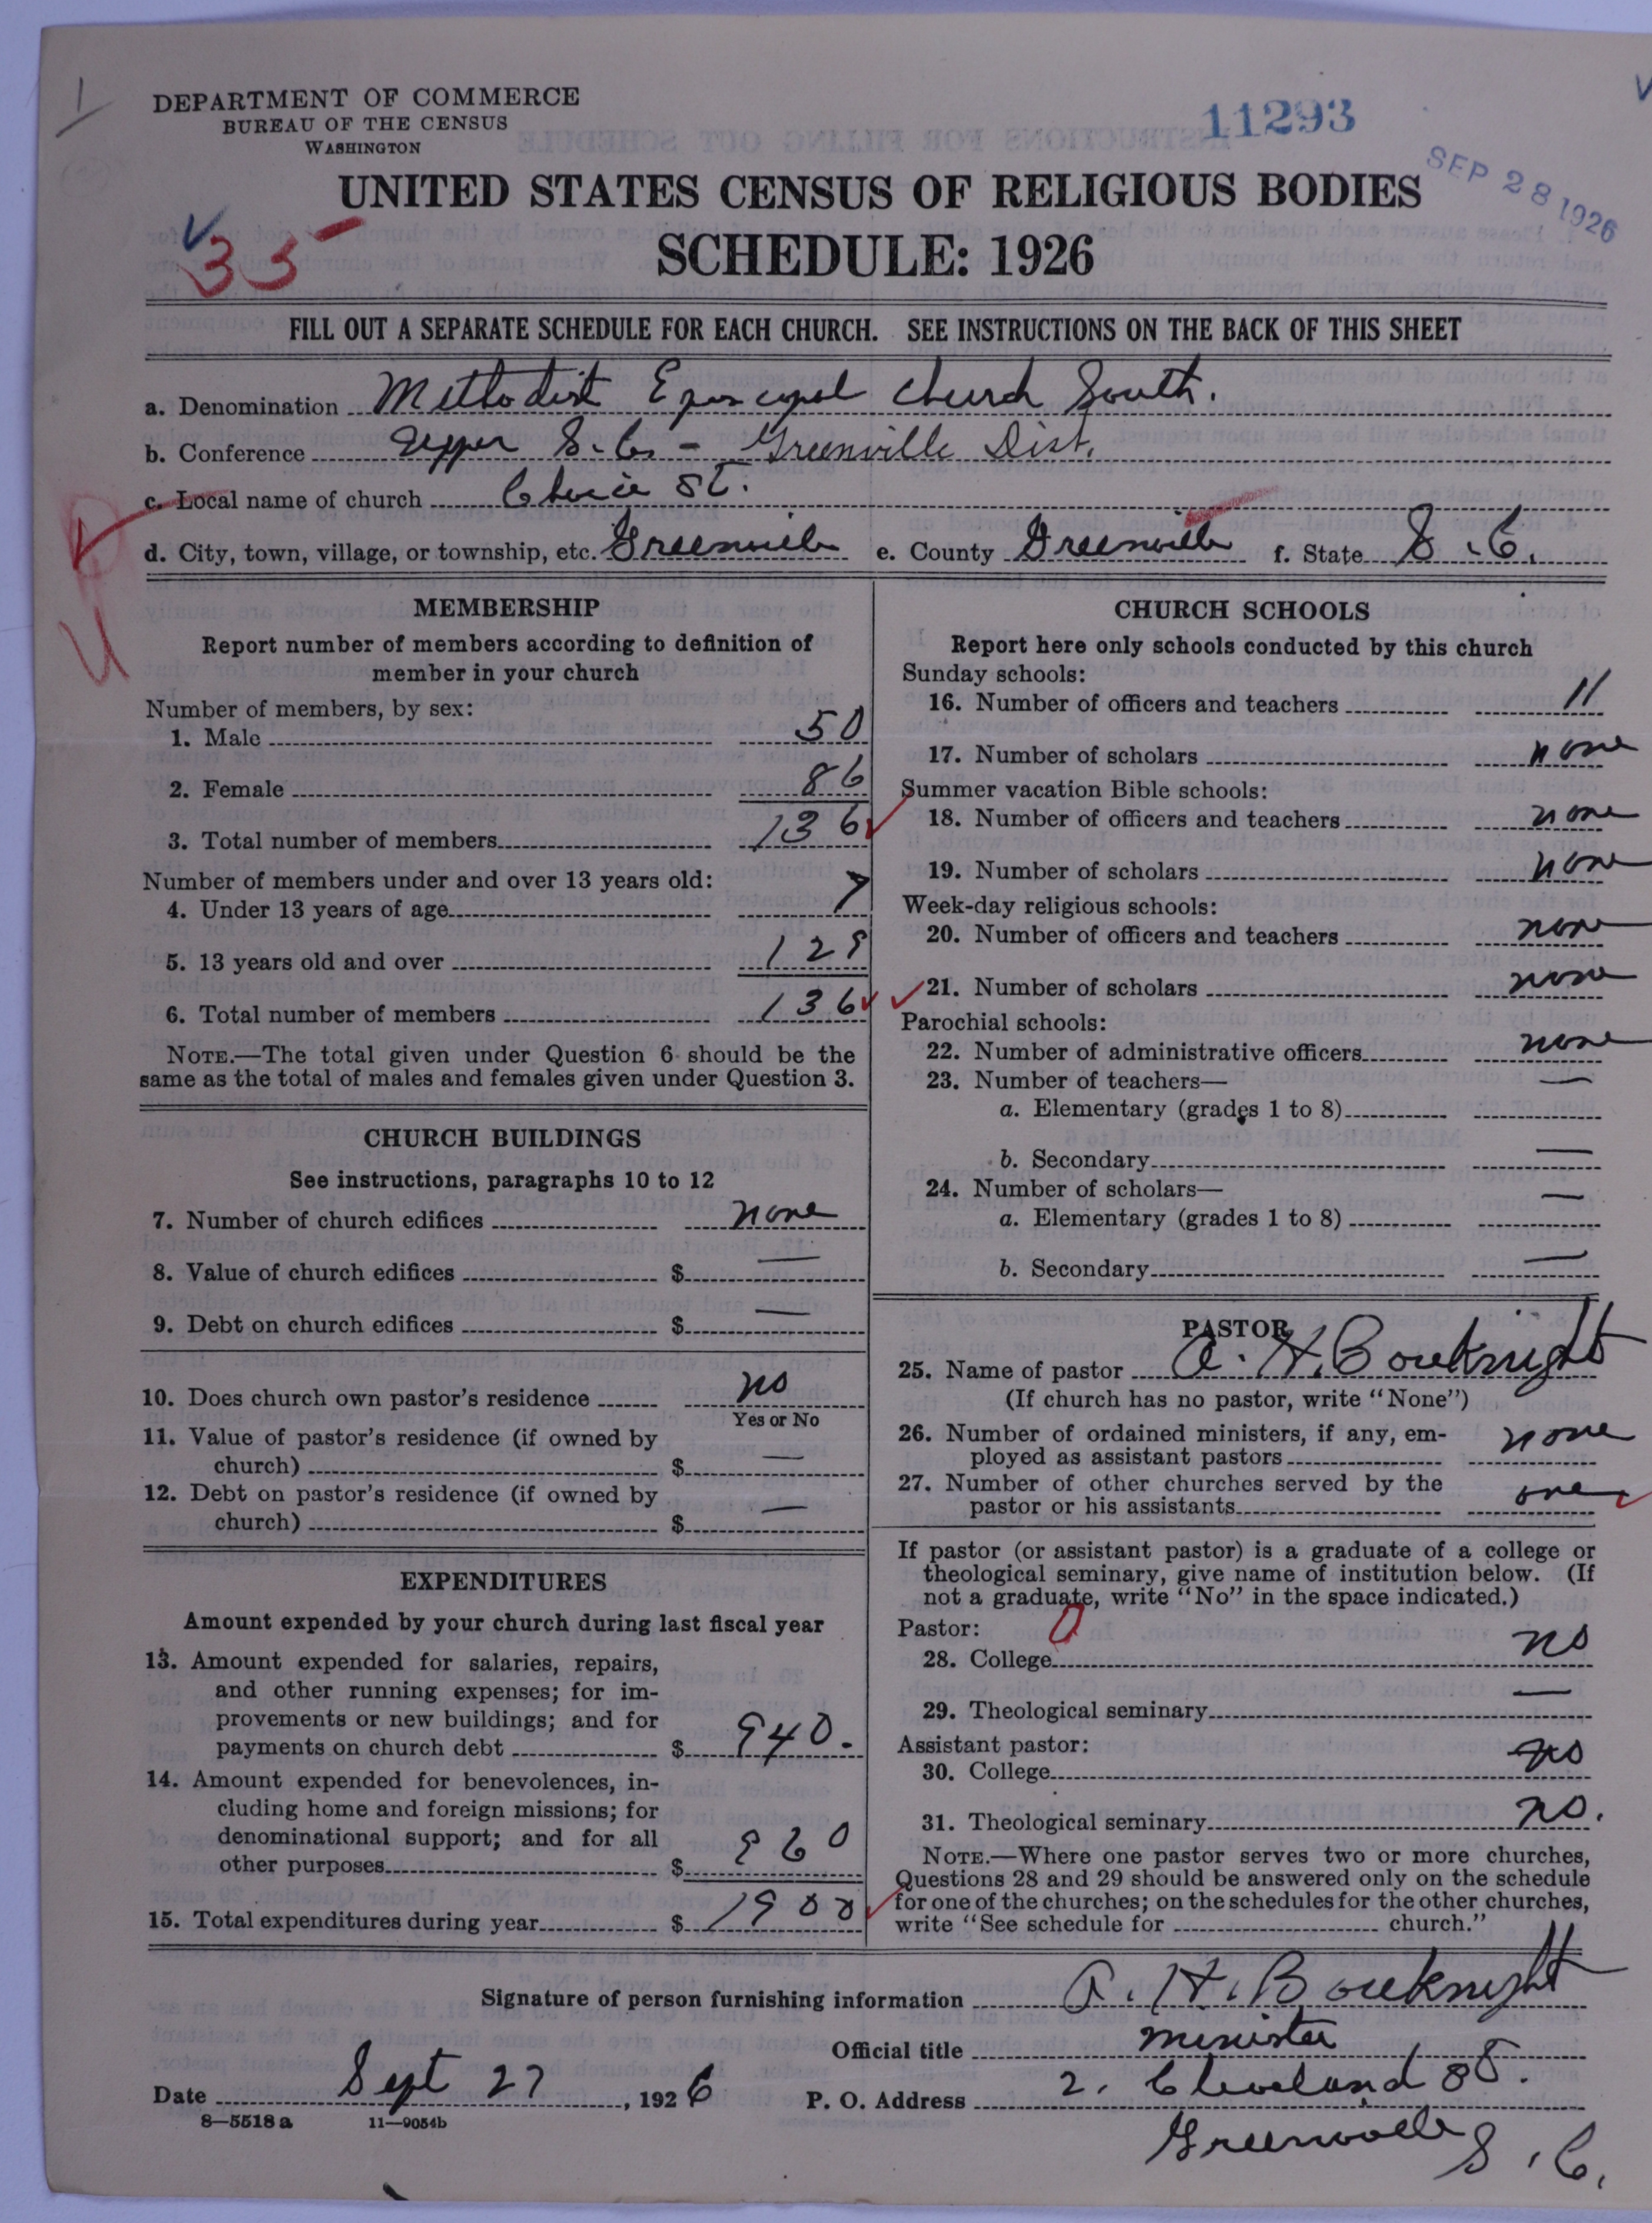 1
DEPARTMENT OF COMMERCE
BUREAU OF THE CENSUS
WASHINGTON
11293
SEP 28 1926
UNITED STATES CENSUS OF RELIGIOUS BODIES
SCHEDULE: 1926
35
FILL OUT A SEPARATE SCHEDULE FOR EACH CHURCH. SEE INSTRUCTIONS ON THE BACK OF THIS SHEET
a. Denomination Methodist Episcopal Church South.
b. Conference Upper S.C. - Greenville Dist.
c. Local name of church Choice St.
d. City, town, village, or township, etc. Greenville e. County Greenville f. State S.C.
U
MEMBERSHIP
Report number of members according to definition of
member in your church
Number of members, by sex:
1. Male 50
2. Female 86
3. Total number of members 136
Number of members under and over 13 years old:
4. Under 13 years of age 7
5. 13 years old and over 129
6. Total number of members 136
NOTE.—The total given under Question 6 should be the
same as the total of males and females given under Question 3.
CHURCH BUILDINGS
See instructions, paragraphs 10 to 12
7. Number of church edifices none
8. Value of church edifices $ —
9. Debt on church edifices $ —
10. Does church own pastor's residence no
Yes or No
11. Value of pastor's residence (if owned by
church) $ —
12. Debt on pastor's residence (if owned by
church) $ —
EXPENDITURES
Amount expended by your church during last fiscal year
13. Amount expended for salaries, repairs,
and other running expenses; for im-
provements or new buildings; and for
payments on church debt $ 940.
14. Amount expended for benevolences, in-
cluding home and foreign missions; for
denominational support; and for all
other purposes $ 960
15. Total expenditures during year $ 1900
CHURCH SCHOOLS
Report here only schools conducted by this church
Sunday schools:
16. Number of officers and teachers 11
17. Number of scholars none
Summer vacation Bible schools:
18. Number of officers and teachers none
19. Number of scholars none
Week-day religious schools:
20. Number of officers and teachers none
21. Number of scholars none
Parochial schools:
22. Number of administrative officers none
23. Number of teachers— —
a. Elementary (grades 1 to 8)
b. Secondary —
24. Number of scholars— —
a. Elementary (grades 1 to 8)
b. Secondary —
PASTOR
25. Name of pastor A. H. Bouknight
(If church has no pastor, write "None")
26. Number of ordained ministers, if any, em-
ployed as assistant pastors none
27. Number of other churches served by the
pastor or his assistants one
If pastor (or assistant pastor) is a graduate of a college or
theological seminary, give name of institution below. (If
not a graduate, write "No" in the space indicated.)
Pastor: 0
28. College no
29. Theological seminary —
Assistant pastor:
30. College no
31. Theological seminary no.
NOTE.—Where one pastor serves two or more churches,
Questions 28 and 29 should be answered only on the schedule
for one of the churches; on the schedules for the other churches,
write "See schedule for church."
Signature of person furnishing information A. H. Bouknight
Official title minister
Date Sept 27, 1926 P. O. Address 2. Cleveland St.
8—5518 a 11—9054b
Greenville S.C.